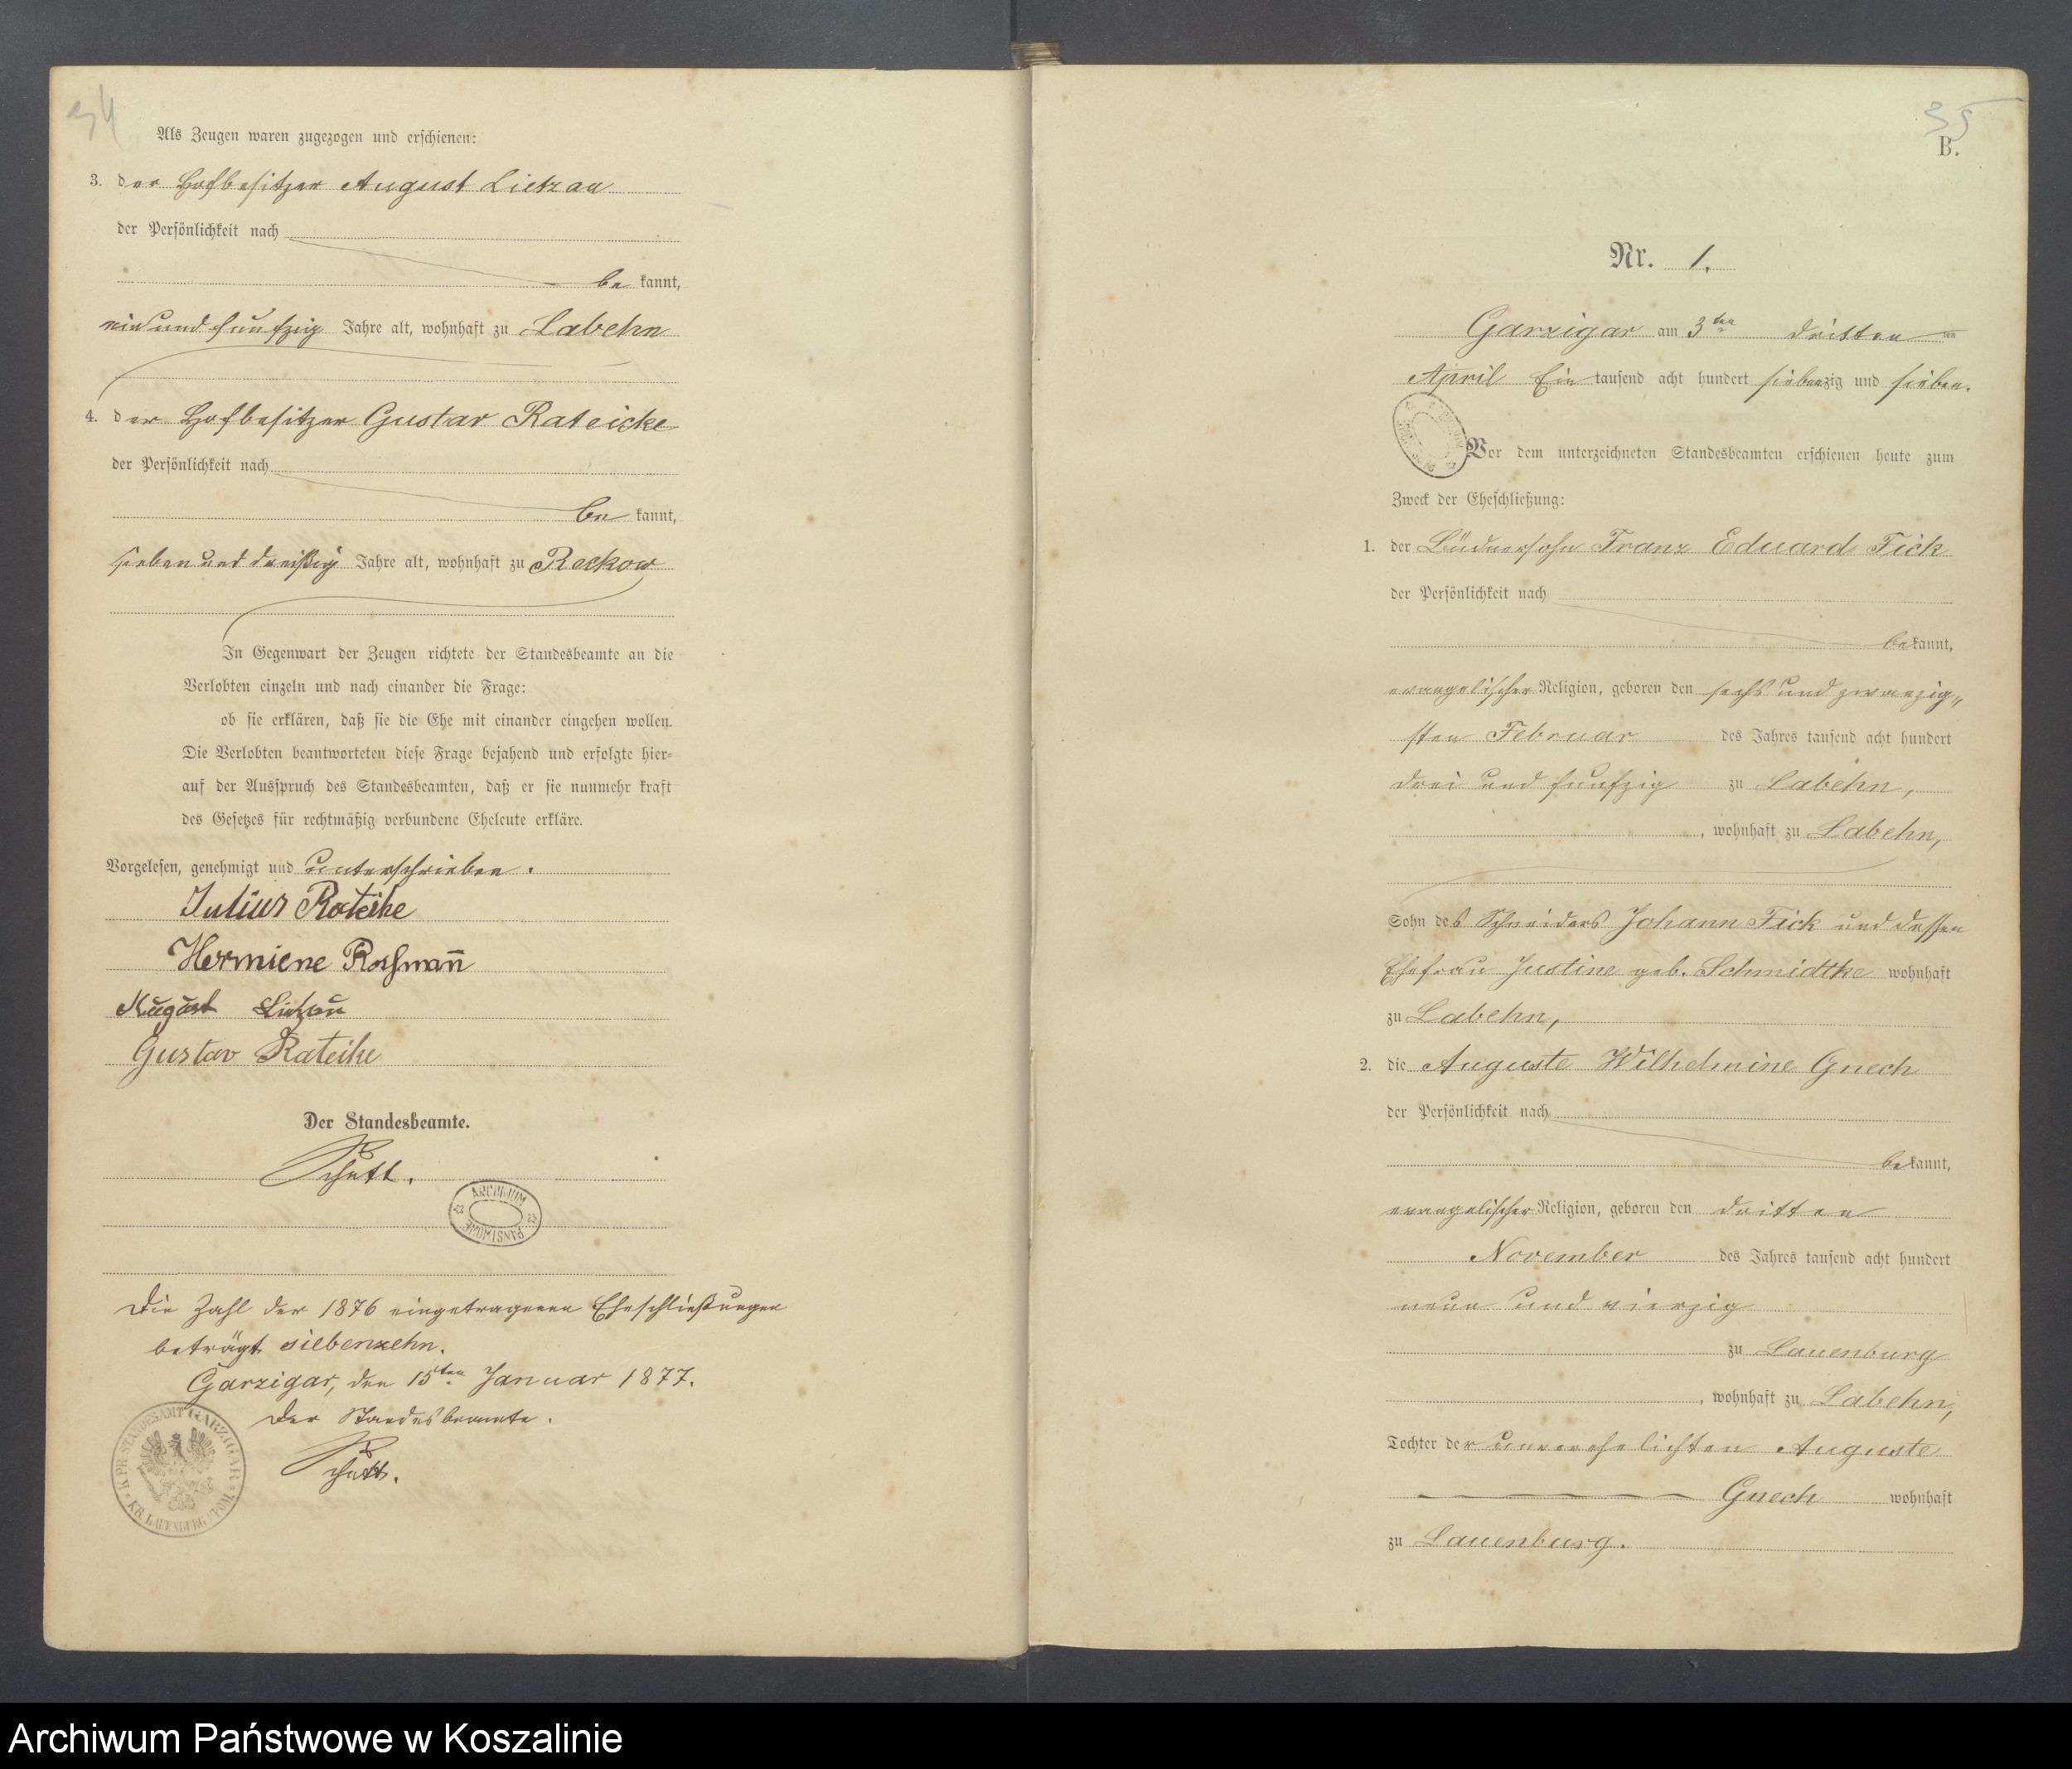 34
Als Zeugen waren zugezogen und erschienen:
3. der Hofbesitzer August Lietzau
der Persönlichkeit nach
be kannt,
ein und funfzig Jahre alt, wohnhaft zu Labehn
4. der Hofbesitzer Gustav Rateicke
der Persönlichkeit nach
be kannt,
sieben und dreißig Jahre alt, wohnhaft zu Reckow
In Gegenwart der Zeugen richtete der Standesbeamte an die
Verlobten einzeln und nach einander die Frage:
ob sie erklären, daß sie die Ehe mit einander eingehen wollen.
Die Verlobten beantworteten diese Frage bejahend und erfolgte hier-
auf der Ausspruch des Standesbeamten, daß er sie nunmehr kraft
des Gesetzes für rechtmäßig verbundene Eheleute erkläre.
Vorgelesen, genehmigt und unterschrieben.
Julius Rateike
Hermiene Roßman̄
August Lietzau
Gustav Rateike
Der Standesbeamte.
Schutt.
ARCHIWUM PAŃSTWOWE
Die Zahl der 1876 eingetragenen Eheschließungen
beträgt siebenzehn.
Garzigar, den 15ten Januar 1877.
Der Standesbeamte.
Schutt.
K. PR. STANDESAMT GARZIGAR
KR. LAUENBURG I/POM.
35
B.
Nr. 1.
Garzigar am 3ten dritten ten
April Ein tausend acht hundert siebenzig und sieben.
Vor dem unterzeichneten Standesbeamten erschienen heute zum
Zweck der Eheschließung:
1. der Büdnersohn Franz Eduard Fick
der Persönlichkeit nach
be kannt,
evangelischer Religion, geboren den sechs und zwanzig„
sten Februar des Jahres tausend acht hundert
drei und funfzig zu Labehn,
, wohnhaft zu Labehn,
Sohn des Schneiders Johann Fick und dessen
Ehefrau Justine geb. Schmidtke wohnhaft
zu Labehn,
2. die Auguste Wilhelmine Gnech
der Persönlichkeit nach
be kannt,
evangelischer Religion, geboren den dritten
November des Jahres tausend acht hundert
neun und vierzig
zu Lauenburg
, wohnhaft zu Labehn,
Tochter der unverehelichten Auguste
Gnech wohnhaft
zu Lauenburg.
Archiwum Państwowe w Koszalinie